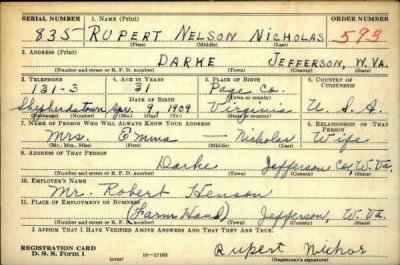 SERIAL NUMBER 1. NAME (Print) ORDER NUMBER
835 RUPERT NELSON NICHOLAS 593
(First) (Middle) (Last)
2. ADDRESS (Print)
DARKE JEFFERSON, W.VA.
(Number and street or R. F. D. number) (Town) (County) (State)
3. TELEPHONE 4. AGE IN YEARS 5. PLACE OF BIRTH 6. COUNTRY OF CITIZENSHIP
131-3 31 Page Co.
DATE OF BIRTH (Town or county)
Shepherdstown 9, 1909 Virginia U. S. A.
(Exchange) (Number) (Mo.) (Day) (Yr.) (State or country)
7. NAME OF PERSON WHO WILL ALWAYS KNOW YOUR ADDRESS 8. RELATIONSHIP OF THAT PERSON
Mrs. Emma Nicholas Wife
(Mr., Mrs., Miss) (First) (Middle) (Last)
9. ADDRESS OF THAT PERSON
Darke Jefferson Co, W. Va.
(Number and street or R. F. D. number) (Town) (County) (State)
10. EMPLOYER'S NAME
Mr. Robert Henson
11. PLACE OF EMPLOYMENT OR BUSINESS
(Farm Hand) Jefferson, W. Va.
(Number and street or R. F. D. number) (Town) (County) (State)
I AFFIRM THAT I HAVE VERIFIED ABOVE ANSWERS AND THAT THEY ARE TRUE.
REGISTRATION CARD
D. S. S. Form 1 (over) 16—17105
Rupert Nichos
(Registrant's signature)